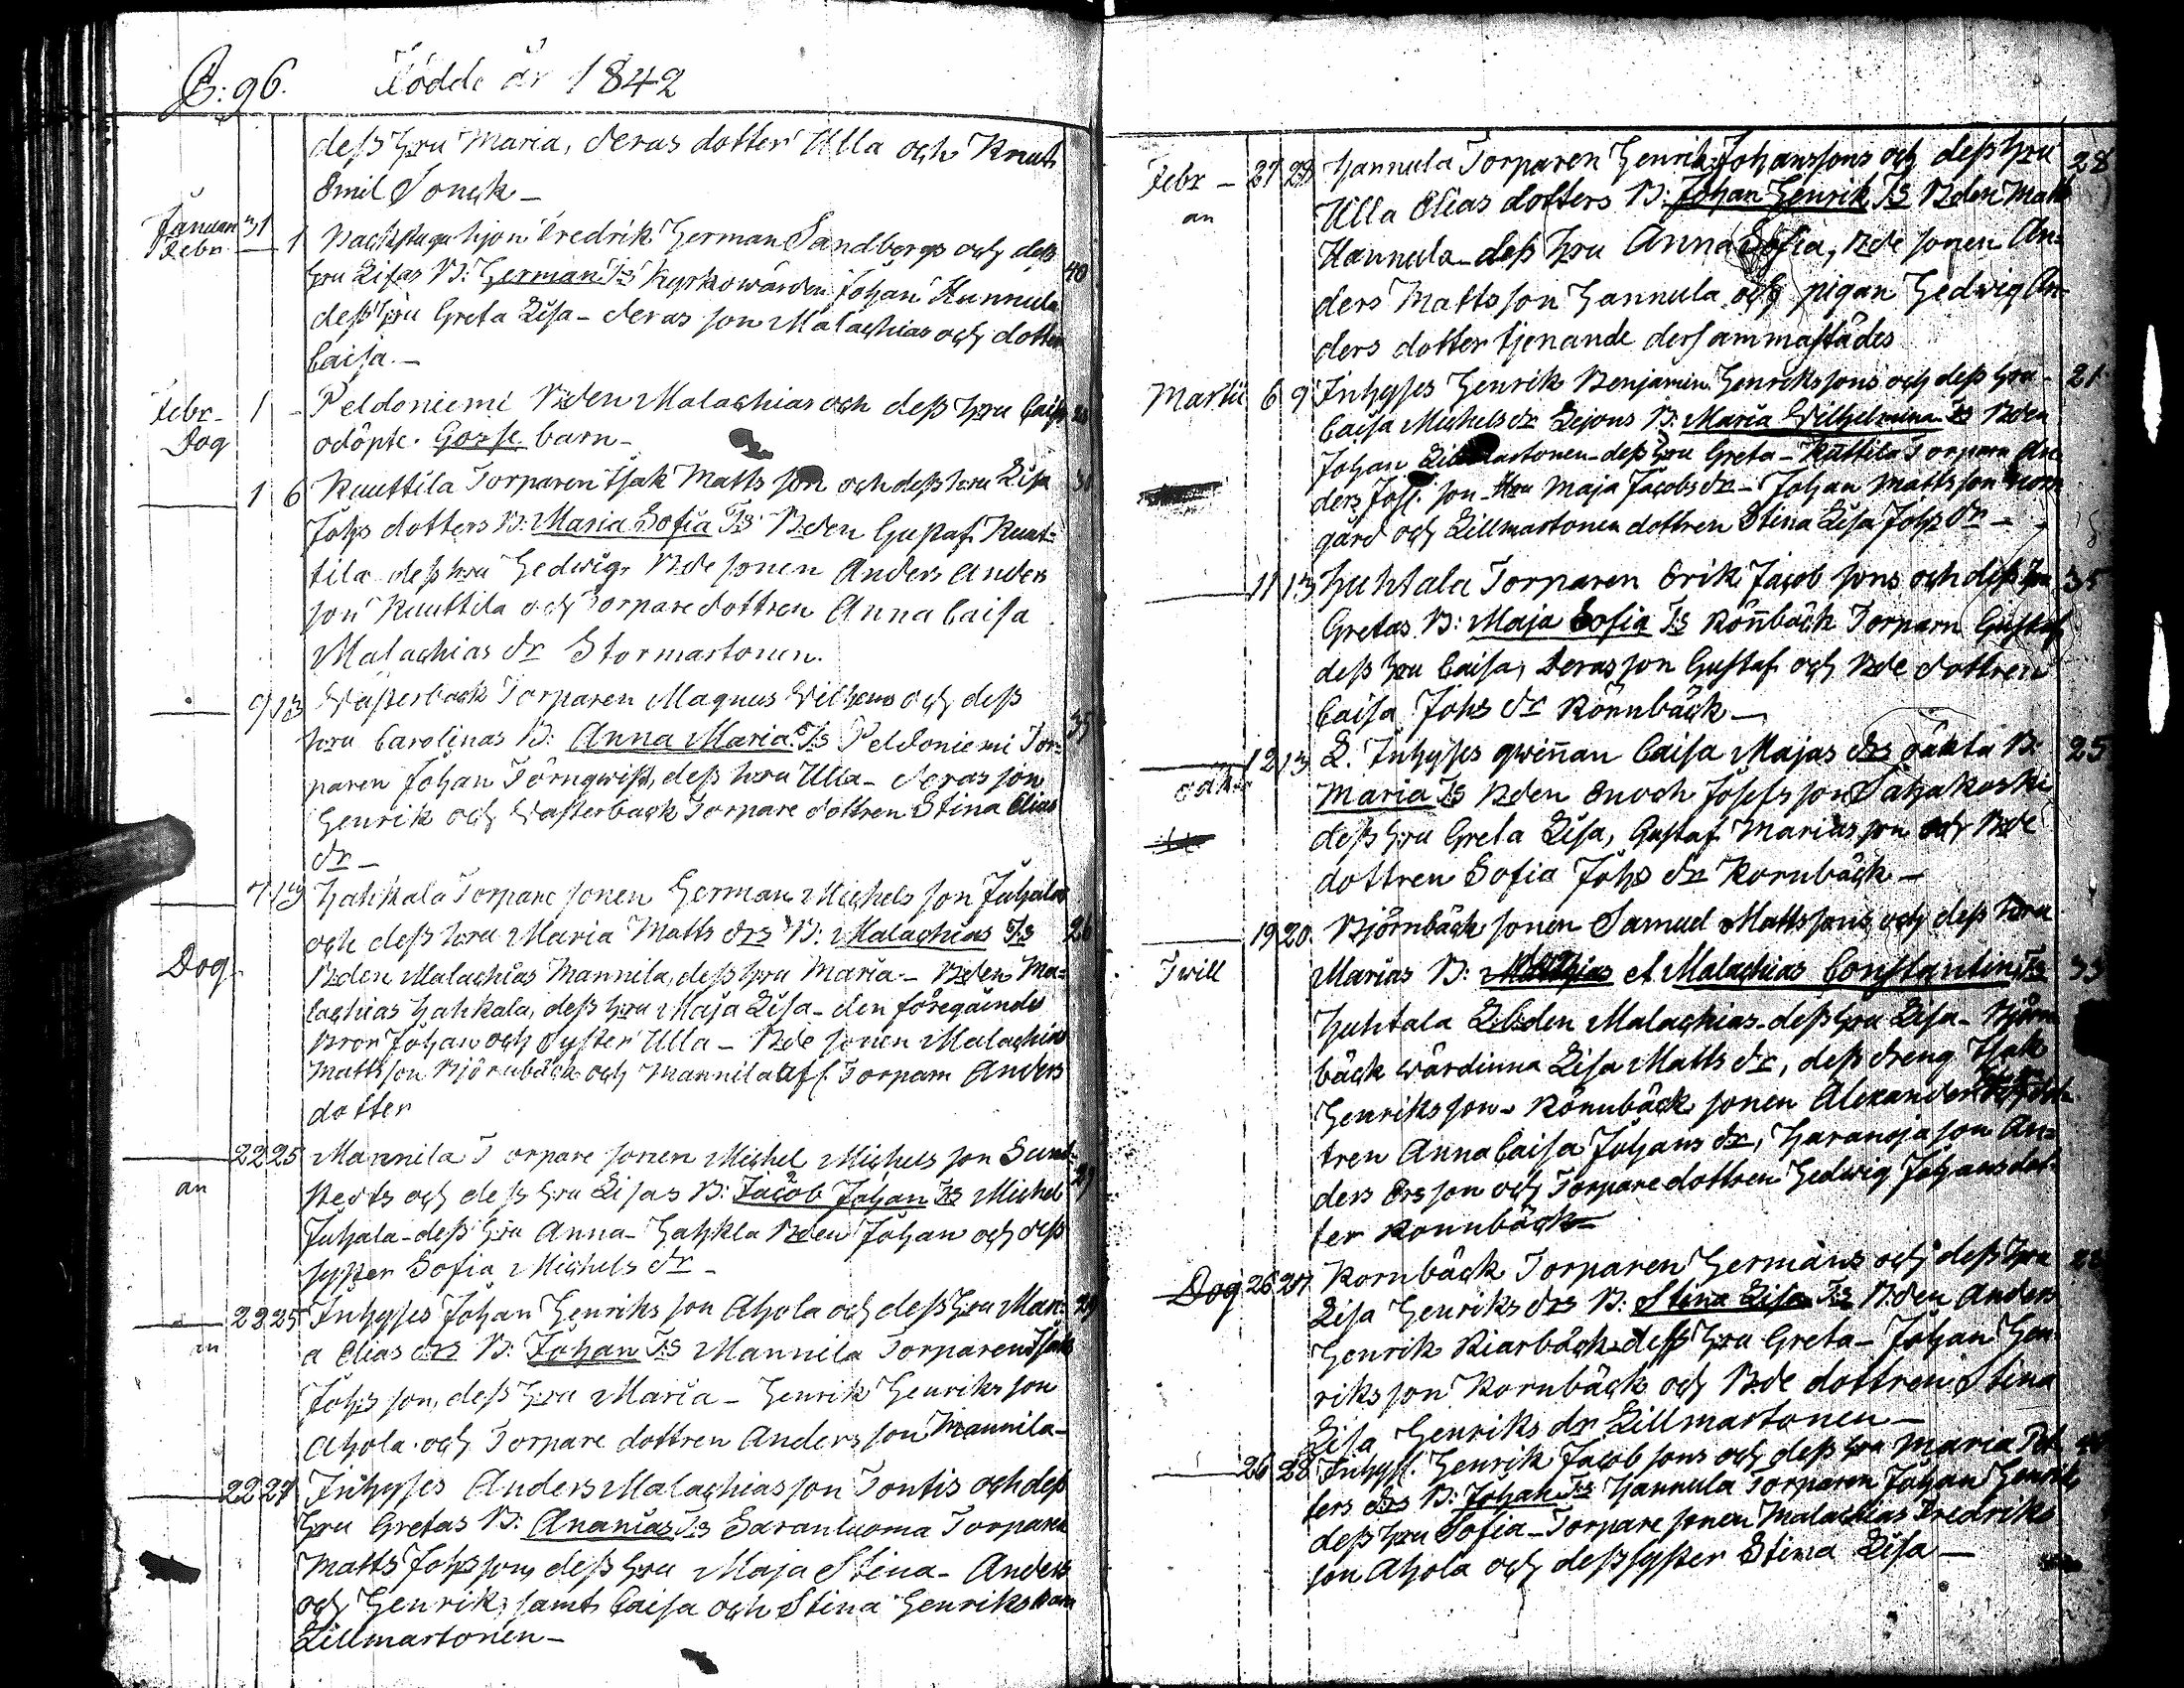 B: 96. Födde år 1842
dess hru Maria, deras dotter Ulla och Knut
Emil Tonck –
Januari 31
Febr. 1 Backstugu hjon Fredrik Herman Sandbergs och dess
hru Lisas B: Herman Ts Kyrkowärden Johan Hannula 40
dess hru Greta Lisa – deras son Malachias och dotter
Caisa. –
Febr – 1 – Peldoniemi Bden Malachias och dess hru Caisa
Dog odöpte. Gosse barn –
1 6 Kuuttila Torparen Isak Matts son och dess hru Lisa
Johs dotters B: Maria Sofia Ts Bden Gustaf Kuut-
tila dess hru Hedwig, Bde sonen Anders Anders
son Kuuttila och Torpare dottren Anna Caisa
Malachias dr Stormartonen.
9 13 Wästerback Torparen Magnus Wilhems och dess
hru Carolinas B: Anna Maria Ts Peldoniemi Tor- 35
paren Johan Törnqwist, dess hru Ulla – deras son
Henrik och Wästerback Torpare dottren Stina Elias
dr –
7 13 Hahkala Torpare sonen Herman Michels son Juhala
och dess hru Maria Matts drs B: Malachias Ts 26
Dog Bden Malachias Mannila, dess hru Maria – Bden Ma-
lachias Hahkala, dess hru Maja Lisa – den föregåendes
Bror Johan och Syster Ulla – Bde sonen Malachias
Matts son Björnbäck och Mannila afl. Torparn Anders
dotter
22 25 Mannila Torpare sonen Michel Michels son Sund-
an stedts och dess hru Lisas B: Jacob Johan Ts Michel 29
Juhala – dess hru Anna – Hahkla Bden Johan och dess
syster Sofia Michels dr –
22 25 Inhyses Johan Henriks son Ahola och dess hru Mari- 29
an a Elias drs B: Johan Ts Mannila Torparen Isak
Johs son, dess hru Maria – Henrik Henriks son
Ahola och Torpare dottren Anders son Mannila –
22 27 Inhyses Anders Malachias son Tontis och dess
hru Gretas B: Ananias Ts Saranluoma Torparen
Matts Johs son, dess hru Maja Stina – Anders
och Henrik, samt Caisa och Stina Henriks barn
Lillmartonen –
Febr – 27 28 Hannula Torparen Henrik Johanssons och dess hru 28
an Ulla Elias dotters B: Johan Henrik Ts Bden Matts
Hannula – dess hru Anna Sofia, Bde sonen An-
ders Mattsson Hannula och pigan Hedwig An-
ders dotter tjenande dersammastädes
Martii 6 9 Inhyses Henrik Benjamin Henrikssons och dess hru 21
Caisa Michels dr Lejons B: Maria Wilhelmina Ts Bden
Johan Lillmartonen – dess hru Greta – Kuttila Torparn An-
ders Johs. son – Hru Maja Jacobs dr – Johan Matts son Norr
gård och Lillmartonen dottren Stina Lisa Johs dr –
11 13 Huhtala Torparen Erik Jacob sons och dess hru 35
Gretas B: Maja Sofia Ts Rönnbäck Torparn Gustaf
dess hru Caisa, deras son Gustaf och Bde dottren
Caisa Johs dr Rönnbäck –
12 13 L. Inhyses qwinnan Caisa Majas drs oäkta B: 25
oäkta Maria Ts Bden Enoch Josefs son Sahakoski
dess hru Greta Lisa, Gustaf Marias son och Bde
dottren Sofia Johs dr Kornbäck –
19 20 Björnbäck sonen Samuel Mattssons och dess hru
Twill Marias B: Matthias et Malachias Constantin Ts 33
Huhtala Lbden Malachias – dess hru Lisa – Björn
bäck wärdinna Lisa Matts dr, dess dreng Isak
Henriks son – Rönnbäck sonen Alexander
tren Anna Caisa Johans dr, Haranoja son An-
ders Ers son och Torpare dottren Hedwig Johans dot-
ter Rönnbäck –
Dog 26 27 Kornbäck Torparen Hermans och dess hru
Lisa Henriks drs B: Stina Lisa Ts Bden Anders
Henrik Kiarbäck – dess hru Greta – Johan Hen-
riks son Kornbäck och Bde dottren Stina
Lisa Henriks dr Lillmartonen –
26 28 Inhys. Henrik Jacob sons och dess hru Maria Pet-
ters drs B: Johan Ts Hannula Torparen Johan Henrik
dess hru Sofia – Torpare sonen Malachias Fredriks
son Ahola och dess syster Stina Lisa –